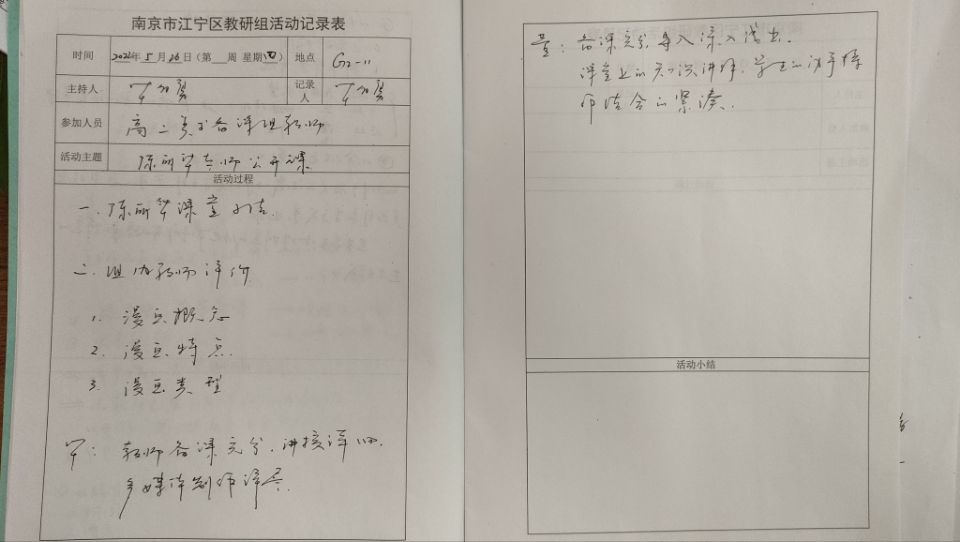 南京市江宁区教研组活动记录表
时间 2022年5月26日(第 周 星期四) 地点 G2-11
主持人 记录人
参加人员 高二美术备课组教师
活动主题 陈 老师公开课
活动过程
一.陈 课堂
二.组内教师评价
1. 漫画概念
2. 漫画特点.
3. 漫画类型
教师备课充分.讲授详细.
多媒体制作详尽.
备课充分.导入深入浅出.
课堂上的知识讲解.学生的动手操
作结合的紧凑.
活动小结